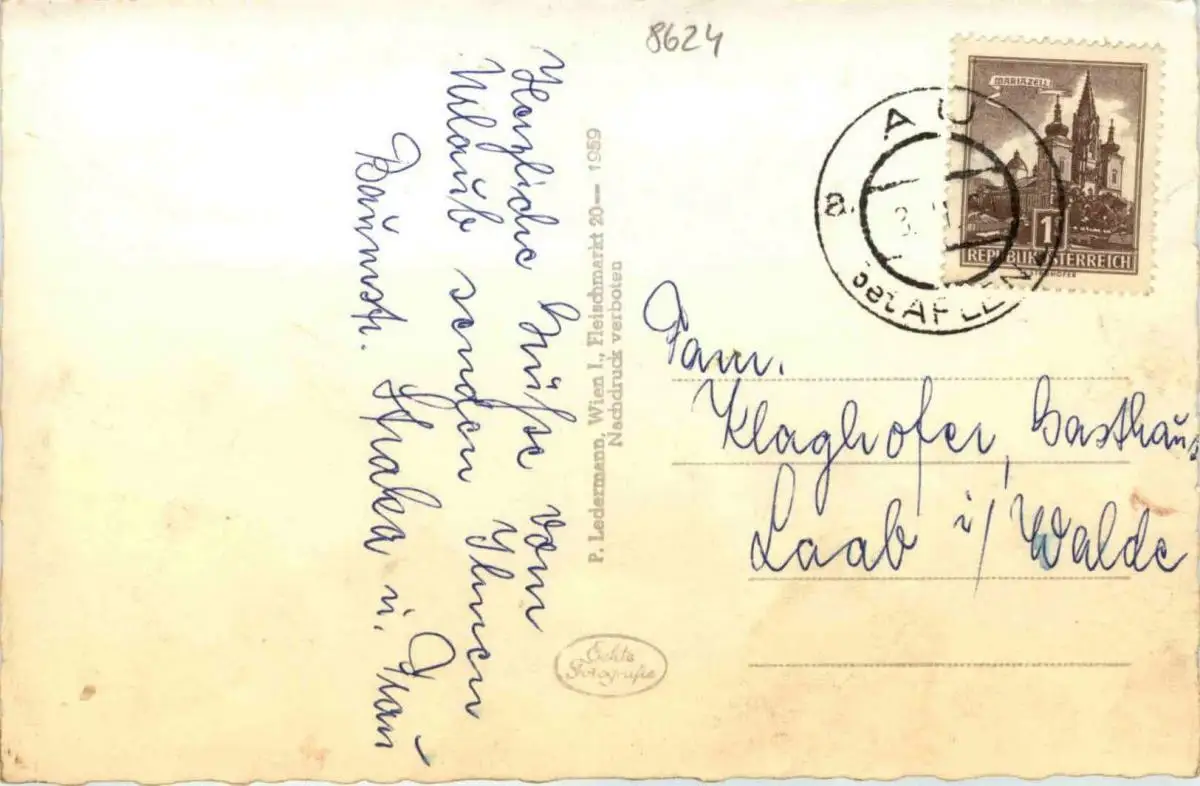 8624
MARIAZELL
1
REPUBLIK ÖSTERREICH
AU
a.
bei AFLENZ
Herzliche Grüße vom
Urlaub senden Ihnen
Baumstr. Straka u. Frau
P. Ledermann, Wien I., Fleischmarkt 20— 1959
Nachdruck verboten
Echte
Fotografie
Fam.
Klaghofer, Gasthaus
Laab i/ Walde